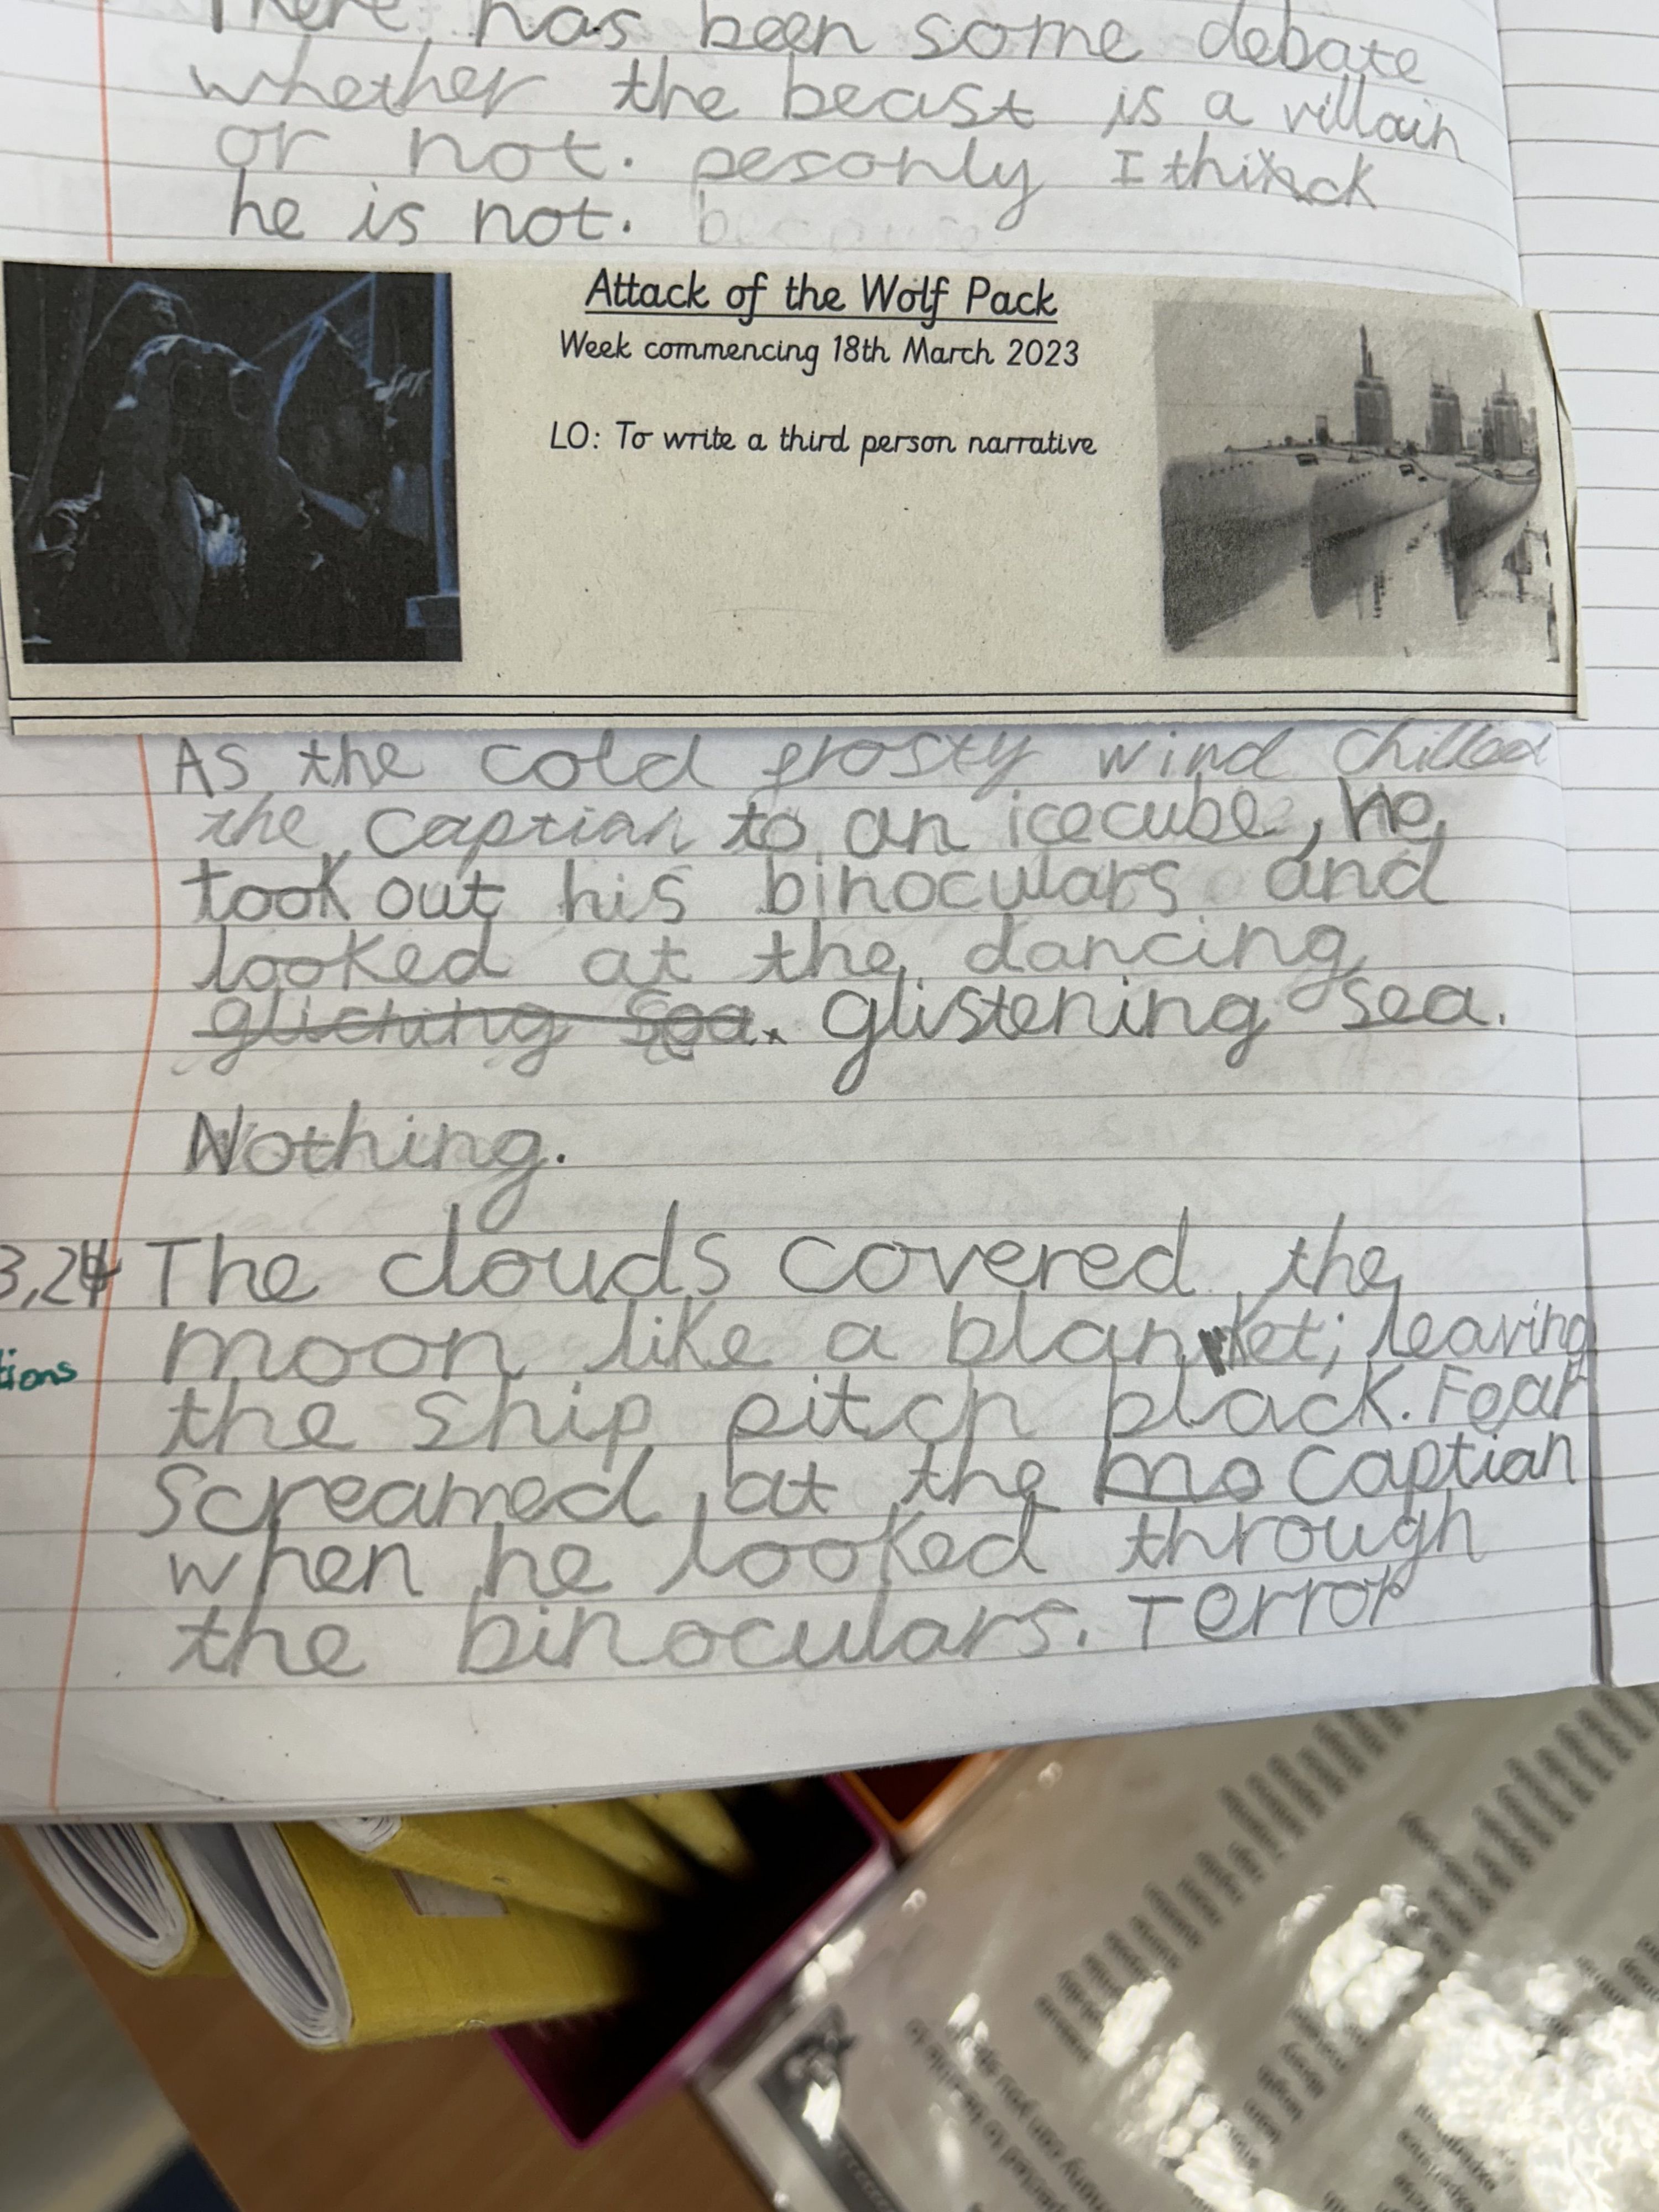 There has been some debate
whether the beast is a villain
or not. pesonly I thinck
he is not. because
Attack of the Wolf Pack
Week commencing 18th March 2023
LO: To write a third person narrative
As the cold frosty wind chilled
the captian to an icecube, he
took out his binoculars and
looked at the dancing
gliching sea. glistening sea.
Nothing.
3,24 The clouds covered the
moon like a blanket; leaving
tions
the ship pitch black. Fear
screamed at the mo captian
when he looked through
the binoculars. Terror